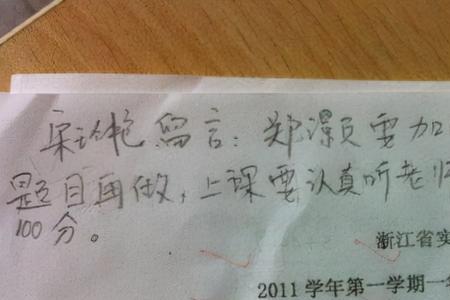 宋玲艳留言：郑灏员要加
题目再做，上课要认真听老师
100分。
浙江省实
2011学年第一学期一